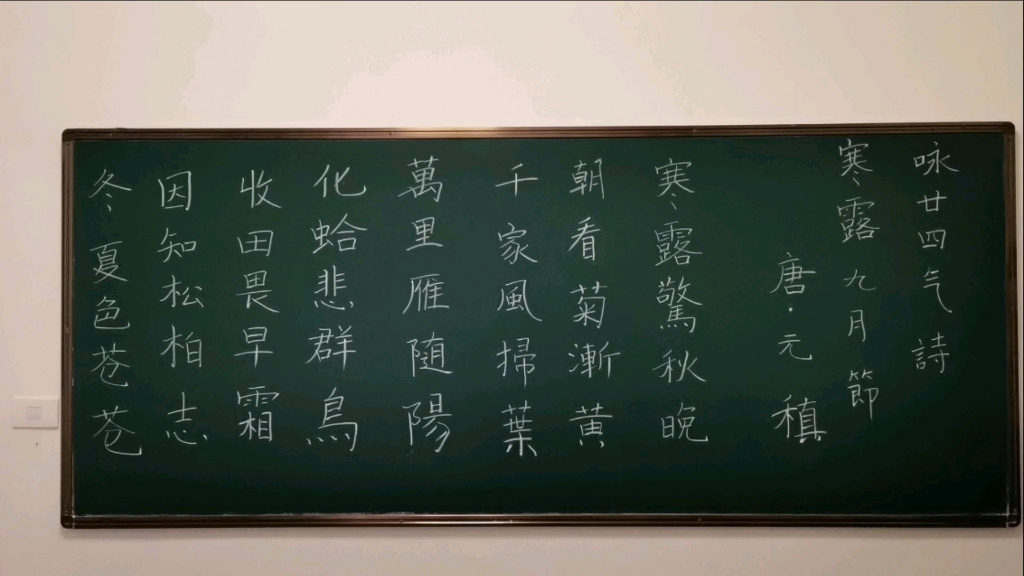 咏廿四气詩
寒露九月節
唐·元稹
寒露驚秋晚
朝看菊漸黄
千家風掃葉
萬里雁随陽
化蛤悲群鳥
收田畏早霜
因知松柏志
冬夏色苍苍